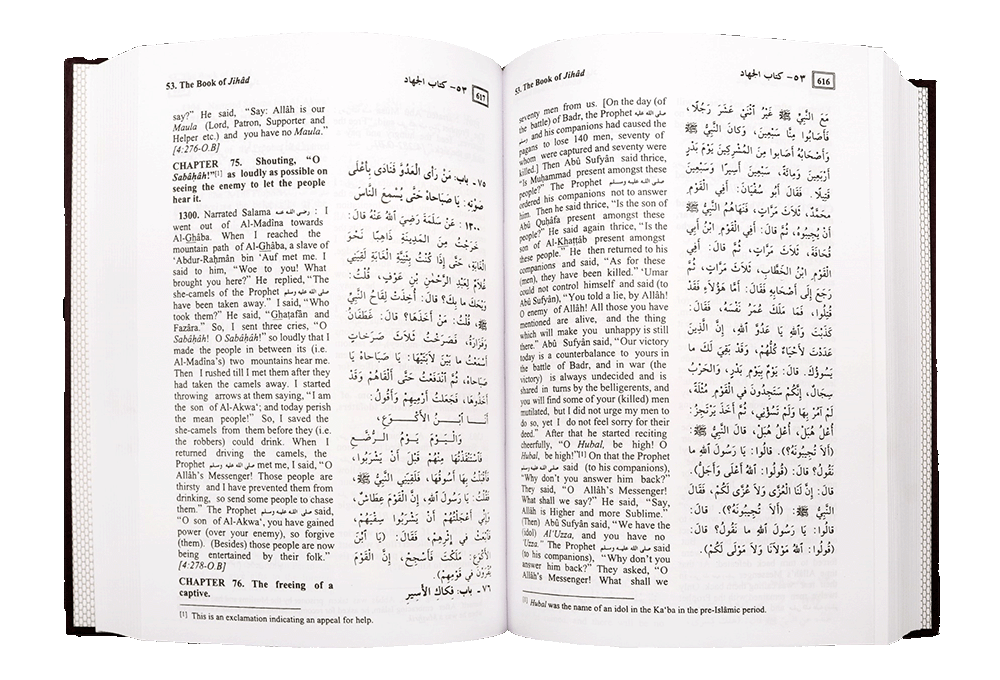 53. The Book of Jihâd
٥٣- كتاب الجهاد
616
seventy men from us. [On the day (of
the battle) of Badr, the Prophet صلى الله عليه وسلم
and his companions had caused the
pagans to lose 140 men, seventy of
whom were captured and seventy were
killed.] Then Abû Sufyân said thrice,
"Is Muḥammad present amongst these
people?" The Prophet صلى الله عليه وسلم
ordered his companions not to answer
him. Then he said thrice, "Is the son of
Abû Quḥâfa present amongst these
people?" He said again thrice, "Is the
son of Al-Khaṭṭâb present amongst
these people." He then returned to his
companions and said, "As for these
(men), they have been killed." 'Umar
could not control himself and said (to
Abû Sufyân), "You told a lie, by Allâh!
O enemy of Allâh! All those you have
mentioned are alive, and the thing
which will make you unhappy is still
there." Abû Sufyân said, "Our victory
today is a counterbalance to yours in
the battle of Badr, and in war (the
victory) is always undecided and is
shared in turns by the belligerents, and
you will find some of your (killed) men
mutilated, but I did not urge my men to
do so, yet I do not feel sorry for their
deed." After that he started reciting
cheerfully, "O Hubal, be high! O
Hubal, be high!"[1] On that the Prophet
صلى الله عليه وسلم said (to his companions),
"Why don't you answer him back?"
They said, "O Allâh's Messenger!
What shall we say?" He said, "Say,
Allâh is Higher and more Sublime."
(Then) Abû Sufyân said, "We have the
(idol) Al'Uzza, and you have no
'Uzza." The Prophet صلى الله عليه وسلم said
(to his companions), "Why don't you
answer him back?" They asked, "O
Allâh's Messenger! What shall we
مَعَ النَّبِيِّ ﷺ غَيْرُ اثْنَيْ عَشَرَ رَجُلًا،
فَأَصَابُوا مِنَّا سَبْعِينَ، وَكَانَ النَّبِيُّ ﷺ
وَأَصْحَابُهُ أَصَابُوا مِنَ المُشْرِكِينَ يَوْمَ بَدْرٍ
أَرْبَعِينَ وَمِائَةً، سَبْعِينَ أَسِيرًا وَسَبْعِينَ
قَتِيلًا، فَقَالَ أَبُو سُفْيَانَ: أَفِي القَوْمِ
مُحَمَّدٌ، ثَلَاثَ مَرَّاتٍ، فَنَهَاهُمُ النَّبِيُّ ﷺ
أَنْ يُجِيبُوهُ، ثُمَّ قَالَ: أَفِي القَوْمِ ابْنُ أَبِي
قُحَافَةَ، ثَلَاثَ مَرَّاتٍ، ثُمَّ قَالَ: أَفِي
القَوْمِ ابْنُ الخَطَّابِ، ثَلَاثَ مَرَّاتٍ، ثُمَّ
رَجَعَ إِلَى أَصْحَابِهِ فَقَالَ: أَمَّا هٰؤُلَاءِ فَقَدْ
قُتِلُوا، فَمَا مَلَكَ عُمَرُ نَفْسَهُ، فَقَالَ:
كَذَبْتَ وَاللهِ يَا عَدُوَّ اللهِ، إِنَّ الَّذِينَ
عَدَدْتَ لَأَحْيَاءٌ كُلُّهُمْ، وَقَدْ بَقِيَ لَكَ مَا
يَسُوؤُكَ. قَالَ: يَوْمٌ بِيَوْمِ بَدْرٍ، وَالحَرْبُ
سِجَالٌ، إِنَّكُمْ سَتَجِدُونَ فِي القَوْمِ مُثْلَةً،
لَمْ آمُرْ بِهَا وَلَمْ تَسُؤْنِي، ثُمَّ أَخَذَ يَرْتَجِزُ:
أُعْلُ هُبَلْ، أُعْلُ هُبَلْ، قَالَ النَّبِيُّ ﷺ:
(أَلَا تُجِيبُونَهُ؟). قَالُوا: يَا رَسُولَ اللهِ ما
نَقُولُ؟ قَالَ: (قُولُوا: اللهُ أَعْلَى وَأَجَلُّ).
قَالَ: إِنَّ لَنَا الْعُزَّى وَلَا عُزَّى لَكُمْ، فَقَالَ
النَّبِيُّ ﷺ: (أَلَا تُجِيبُونَهُ؟). قَالَ:
قَالُوا: يَا رَسُولَ اللهِ مَا نَقُولُ؟ قَالَ:
(قُولُوا: اللهُ مَوْلَانَا وَلَا مَوْلَى لَكُمْ).
[1] Hubal was the name of an idol in the Ka'ba in the pre-Islâmic period.
53. The Book of Jihâd
٥٣- كتاب الجهاد
617
say?" He said, "Say: Allâh is our
Maula (Lord, Patron, Supporter and
Helper etc.) and you have no Maula."
[4:276-O.B]
CHAPTER 75. Shouting, "O
Sabâḥâh!"[1] as loudly as possible on
seeing the enemy to let the people
hear it.
1300. Narrated Salama رضي الله عنه : I
went out of Al-Madîna towards
Al-Ghâba. When I reached the
mountain path of Al-Ghâba, a slave of
'Abdur-Raḥmân bin 'Auf met me. I
said to him, "Woe to you! What
brought you here?" He replied, "The
she-camels of the Prophet صلى الله عليه وسلم
have been taken away." I said, "Who
took them?" He said, "Ghaṭafân and
Fazâra." So, I sent three cries, "O
Sabâḥâh! O Sabâḥâh!" so loudly that I
made the people in between its (i.e.
Al-Madîna's) two mountains hear me.
Then I rushed till I met them after they
had taken the camels away. I started
throwing arrows at them saying, "I am
the son of Al-Akwa'; and today perish
the mean people!" So, I saved the
she-camels from them before they (i.e.
the robbers) could drink. When I
returned driving the camels, the
Prophet صلى الله عليه وسلم met me, I said, "O
Allâh's Messenger! Those people are
thirsty and I have prevented them from
drinking, so send some people to chase
them." The Prophet صلى الله عليه وسلم said,
"O son of Al-Akwa', you have gained
power (over your enemy), so forgive
(them). (Besides) those people are now
being entertained by their folk."
[4:278-O.B]
CHAPTER 76. The freeing of a
captive.
٧٥ - باب: مَنْ رَأَى العَدُوَّ فَنَادَى بِأَعْلَى
صَوْتِهِ: يَا صَبَاحَاهْ حَتَّى يُسْمِعَ النَّاسَ
١٣٠٠ : عَنْ سَلَمَةَ رَضِيَ اللهُ عَنْهُ قَالَ:
خَرَجْتُ مِنَ المَدِينَةِ ذَاهِبًا نَحْوَ
الْغَابَةِ، حَتَّى إِذَا كُنْتُ بِثَنِيَّةِ الْغَابَةِ لَقِيَنِي
غُلَامٌ لِعَبْدِ الرَّحْمٰنِ بْنِ عَوْفٍ، قُلْتُ:
وَيْحَكَ ما بِكَ؟ قَالَ: أُخِذَتْ لِقَاحُ النَّبِيِّ
ﷺ، قُلْتُ: مَنْ أَخَذَهَا؟ قَالَ: غَطَفَانُ
وَفَزَارَةُ، فَصَرَخْتُ ثَلَاثَ صَرَخَاتٍ
أَسْمَعْتُ ما بَيْنَ لَابَتَيْهَا: يَا صَبَاحَاهْ يَا
صَبَاحَاهْ، ثُمَّ انْدَفَعْتُ حَتَّى أَلْقَاهُمْ وَقَدْ
أَخَذُوهَا، فَجَعَلْتُ أَرْمِيهِمْ وَأَقُولُ:
أَنَا ابْنُ الأَكْوَعِ،
وَالْيَوْمَ يَوْمُ الرُّضَّعِ
فَاسْتَنْقَذْتُهَا مِنْهُمْ قَبْلَ أَنْ يَشْرَبُوا،
فَأَقْبَلْتُ بِهَا أَسُوقُهَا، فَلَقِيَنِي النَّبِيُّ ﷺ،
فَقُلْتُ: يَا رَسُولَ اللهِ، إِنَّ الْقَوْمَ عِطَاشٌ،
وَإِنِّي أَعْجَلْتُهُمْ أَنْ يَشْرَبُوا سِقْيَهُمْ،
فَابْعَثْ فِي إِثْرِهِمْ، فَقَالَ: (يَا ابْنَ
الأَكْوَعِ: مَلَكْتَ فَأَسْجِحْ، إِنَّ الْقَوْمَ
يُقْرَوْنَ فِي قَوْمِهِمْ).
٧٦ - باب: فَكَاكِ الأَسِيرِ
[1] This is an exclamation indicating an appeal for help.